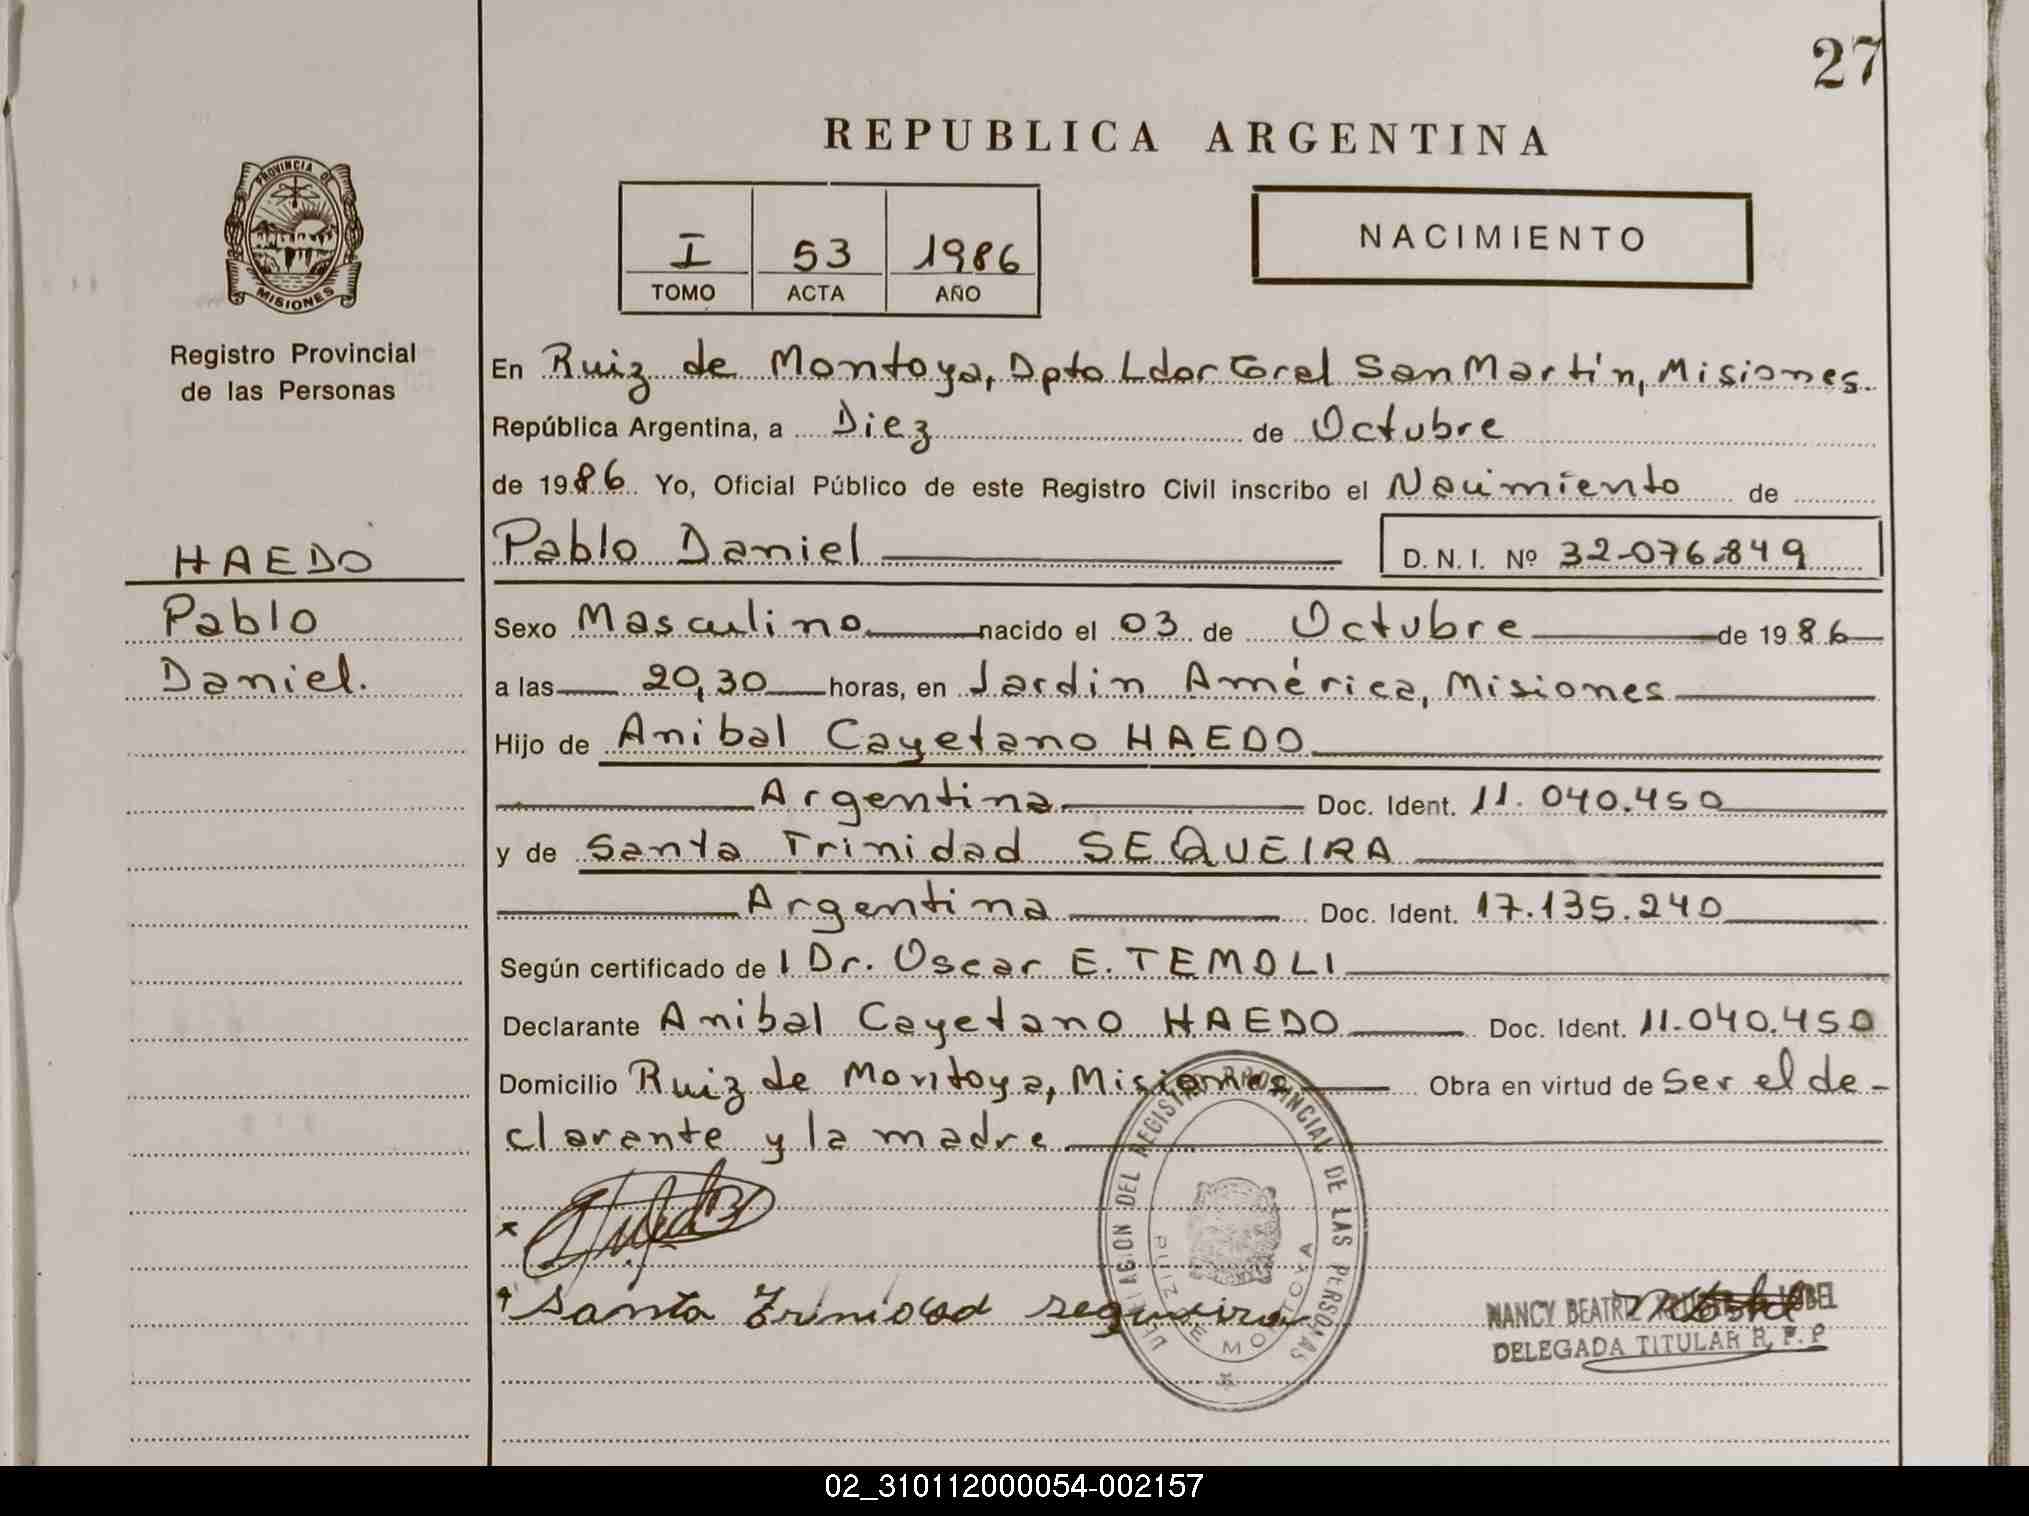 27
REPUBLICA ARGENTINA
PROVINCIA DE
MISIONES
Registro Provincial
de las Personas
I 53 1986
TOMO ACTA AÑO
NACIMIENTO
En Ruiz de Montoya, Dpto Ldor Gral San Martín, Misiones.
República Argentina, a Diez de Octubre
de 1986 Yo, Oficial Público de este Registro Civil inscribo el Nacimiento de
HAEDO
Pablo
Daniel.
Pablo Daniel D. N. I. Nº 32.076.849
Sexo Masculino nacido el 03 de Octubre de 1986
a las 20,30 horas, en Jardin América, Misiones
Hijo de Anibal Cayetano HAEDO
Argentina Doc. Ident. 11.040.450
y de Santa Trinidad SEQUEIRA
Argentina Doc. Ident. 17.135.240
Según certificado de l Dr. Oscar E. TEMOLI
Declarante Anibal Cayetano HAEDO Doc. Ident. 11.040.450
Domicilio Ruiz de Montoya, Misiones Obra en virtud de Ser el de-
clarante y la madre
Santa Trinidad Sequeira
DELEGACION DEL REGISTRO PROVINCIAL DE LAS PERSONAS
RUIZ DE MONTOYA
NANCY BEATRIZ
DELEGADA TITULAR R. P. P
02_310112000054-002157